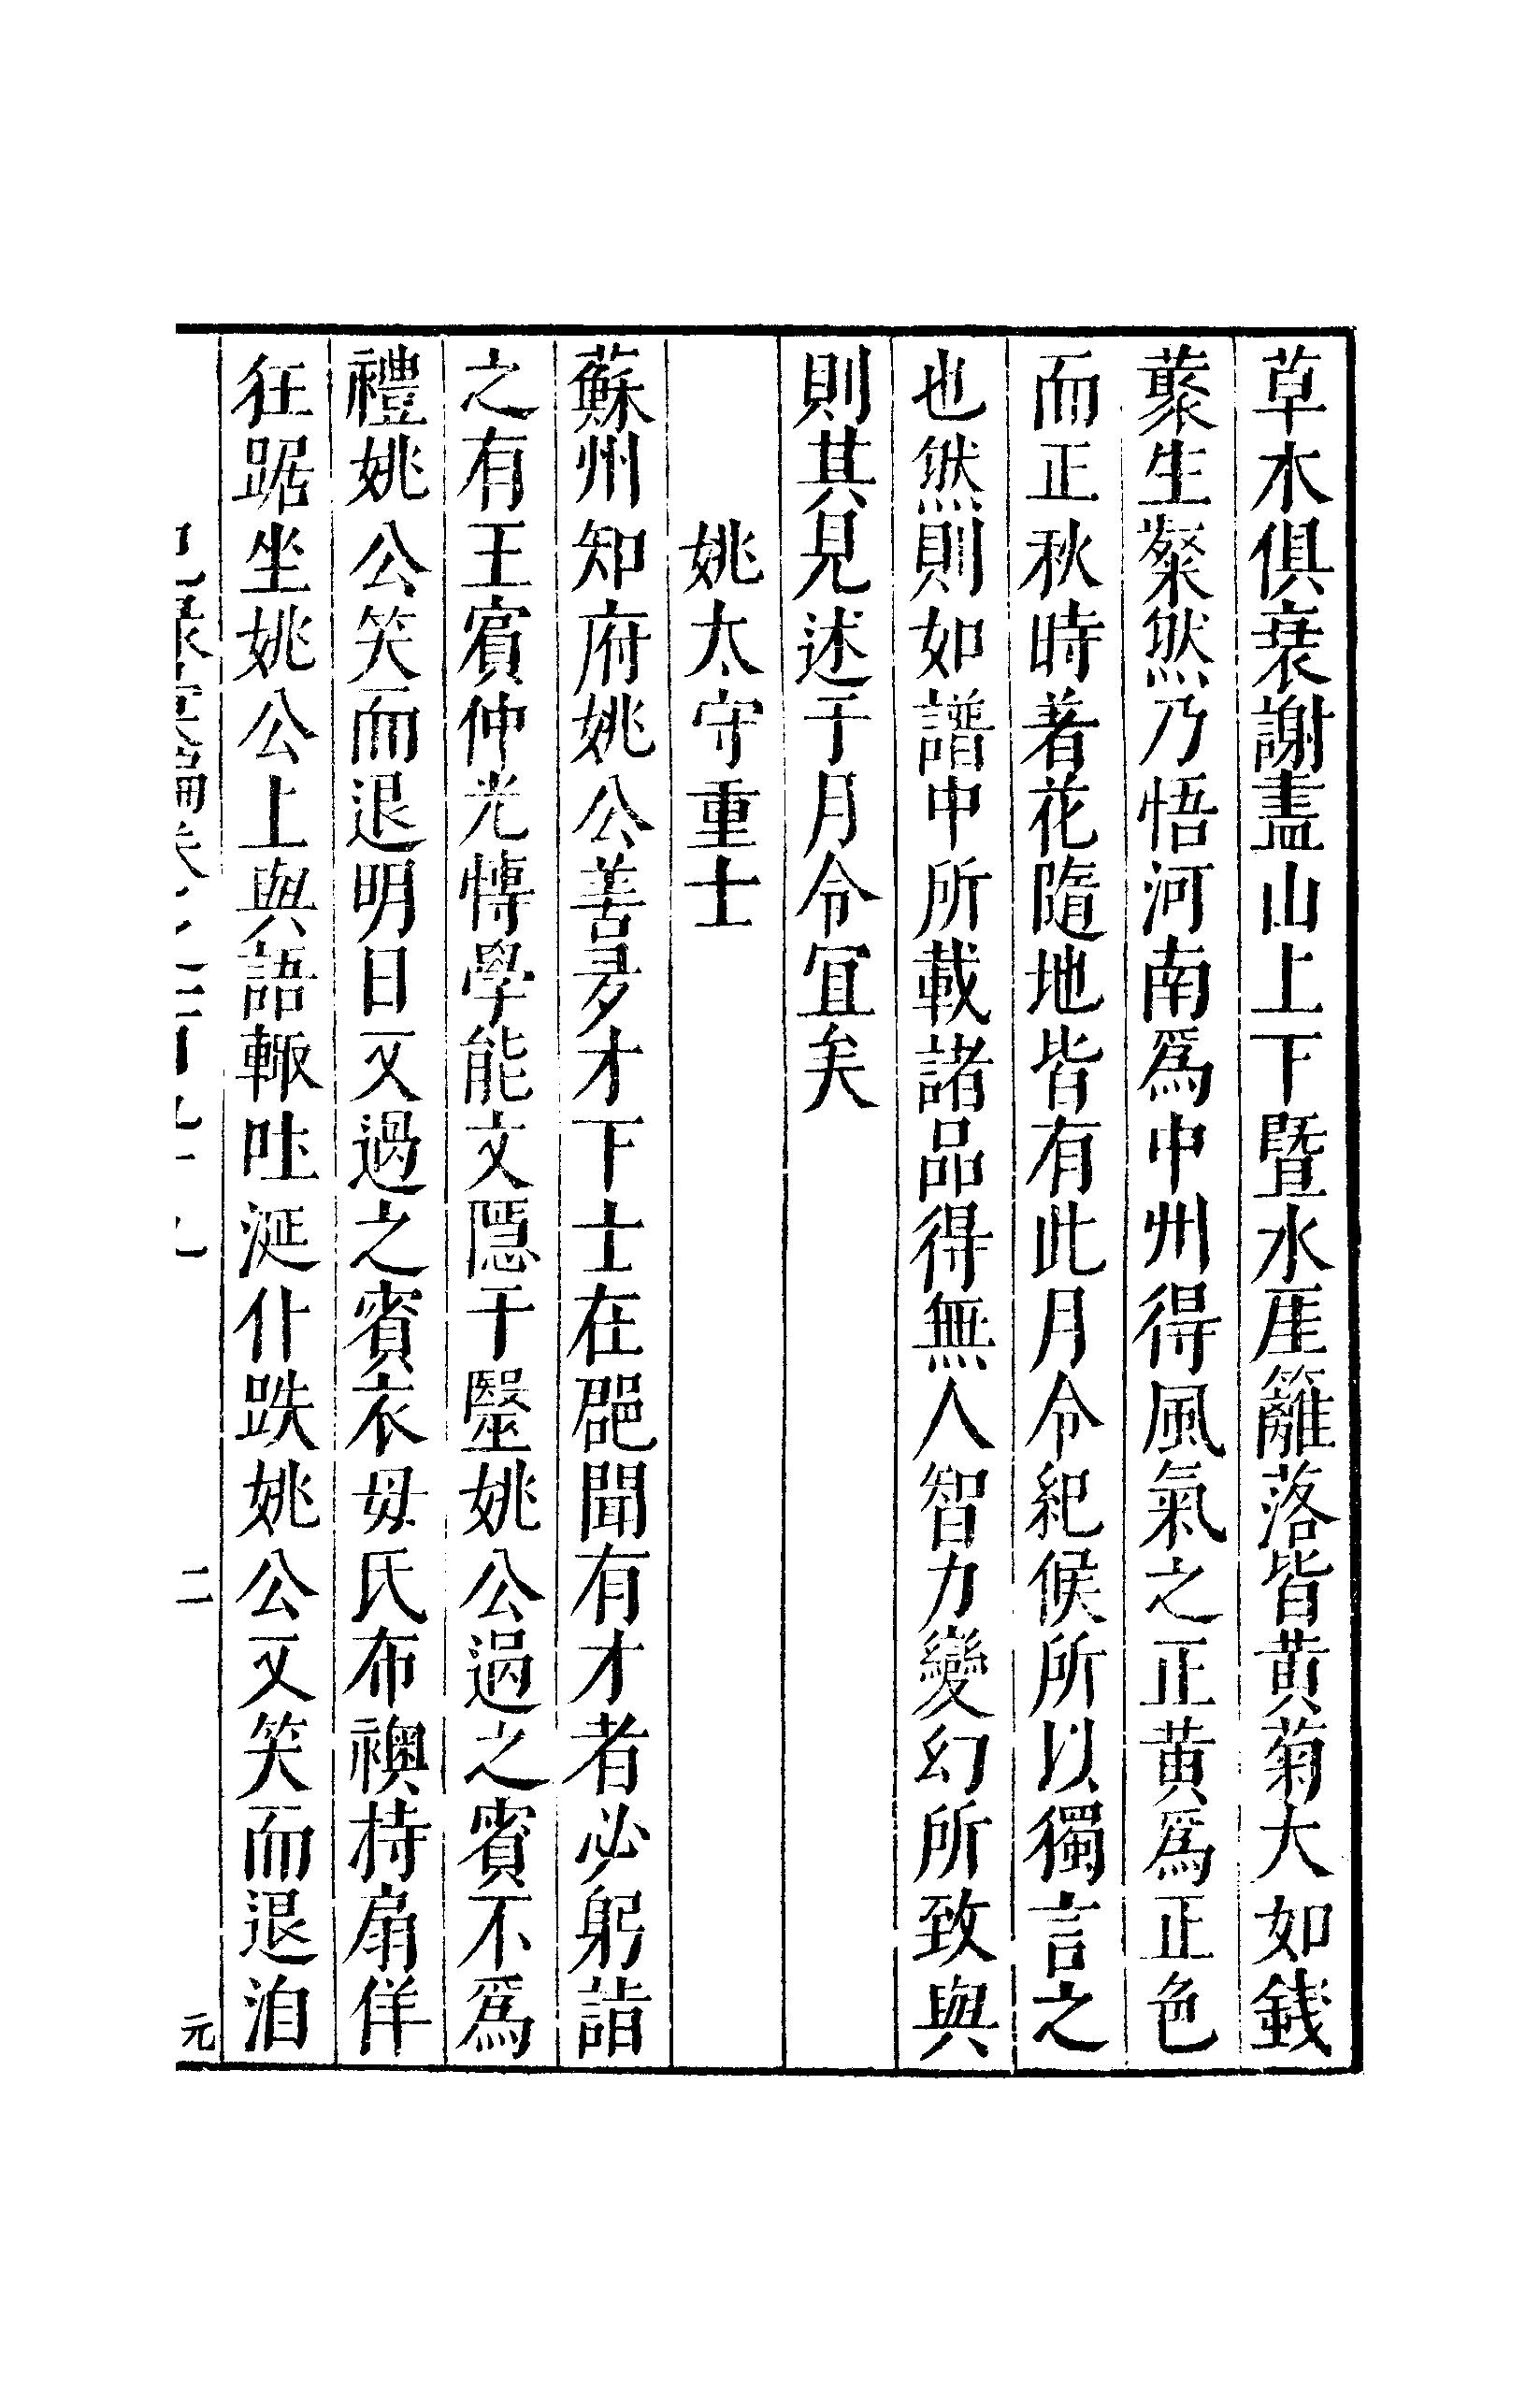 草木俱衰謝盡山上下曁水厓籬落皆黄菊大如錢
藂生粲然乃悟河南爲中州得風氣之正黄爲正色
而正秋時著花隨地皆有此月令紀候所以獨言之
也然則如譜中所載諸品得無人智力變幻所致與
則其見述于月令宜矣
姚太守重士
蘇州知府姚公善多才下士在郡聞有才者必躬詣
之有王賓仲光博學能文隱于毉姚公過之賓不爲
禮姚公笑而退明日又過之賓衣母氏布襖持扇佯
狂踞坐姚公上與語輒吐涎仆跌姚公又笑而退洎
二
元